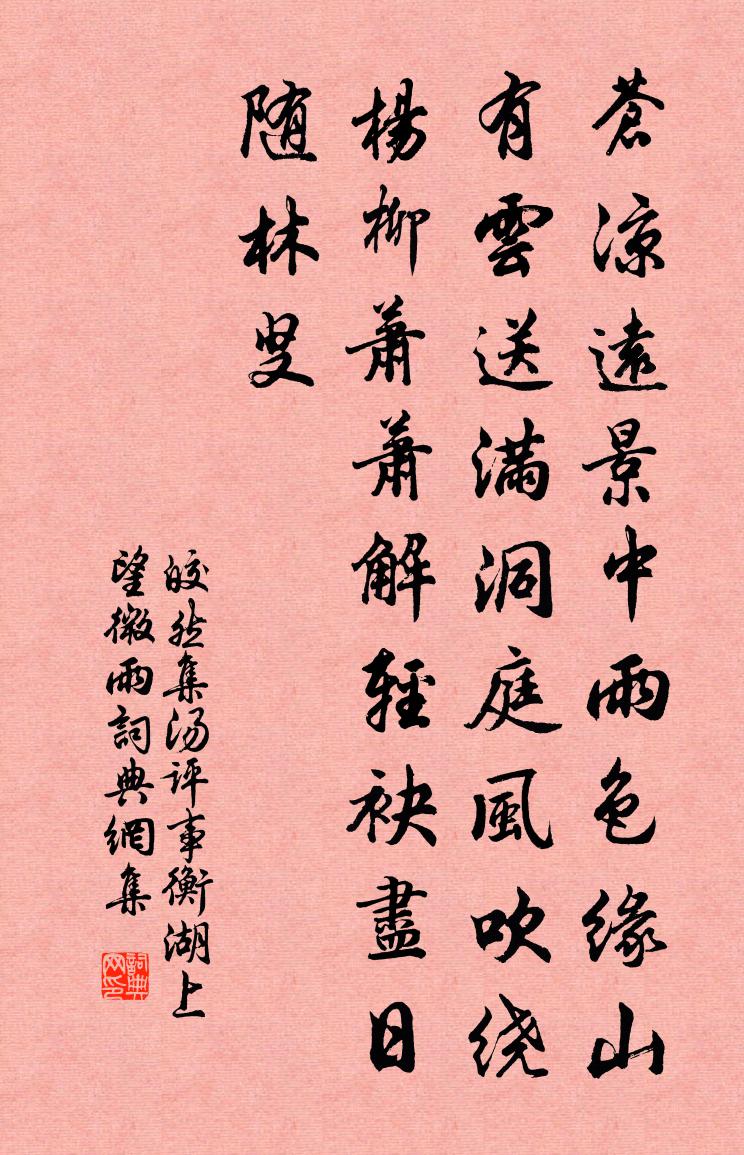 蒼凉遠景中雨色缘山
有雲送滿洞庭風吹绕
楊柳蕭蕭解輕袂盡日
随林叟
皎然集汤评事衡湖上
望微雨詞典網集
詞典网印